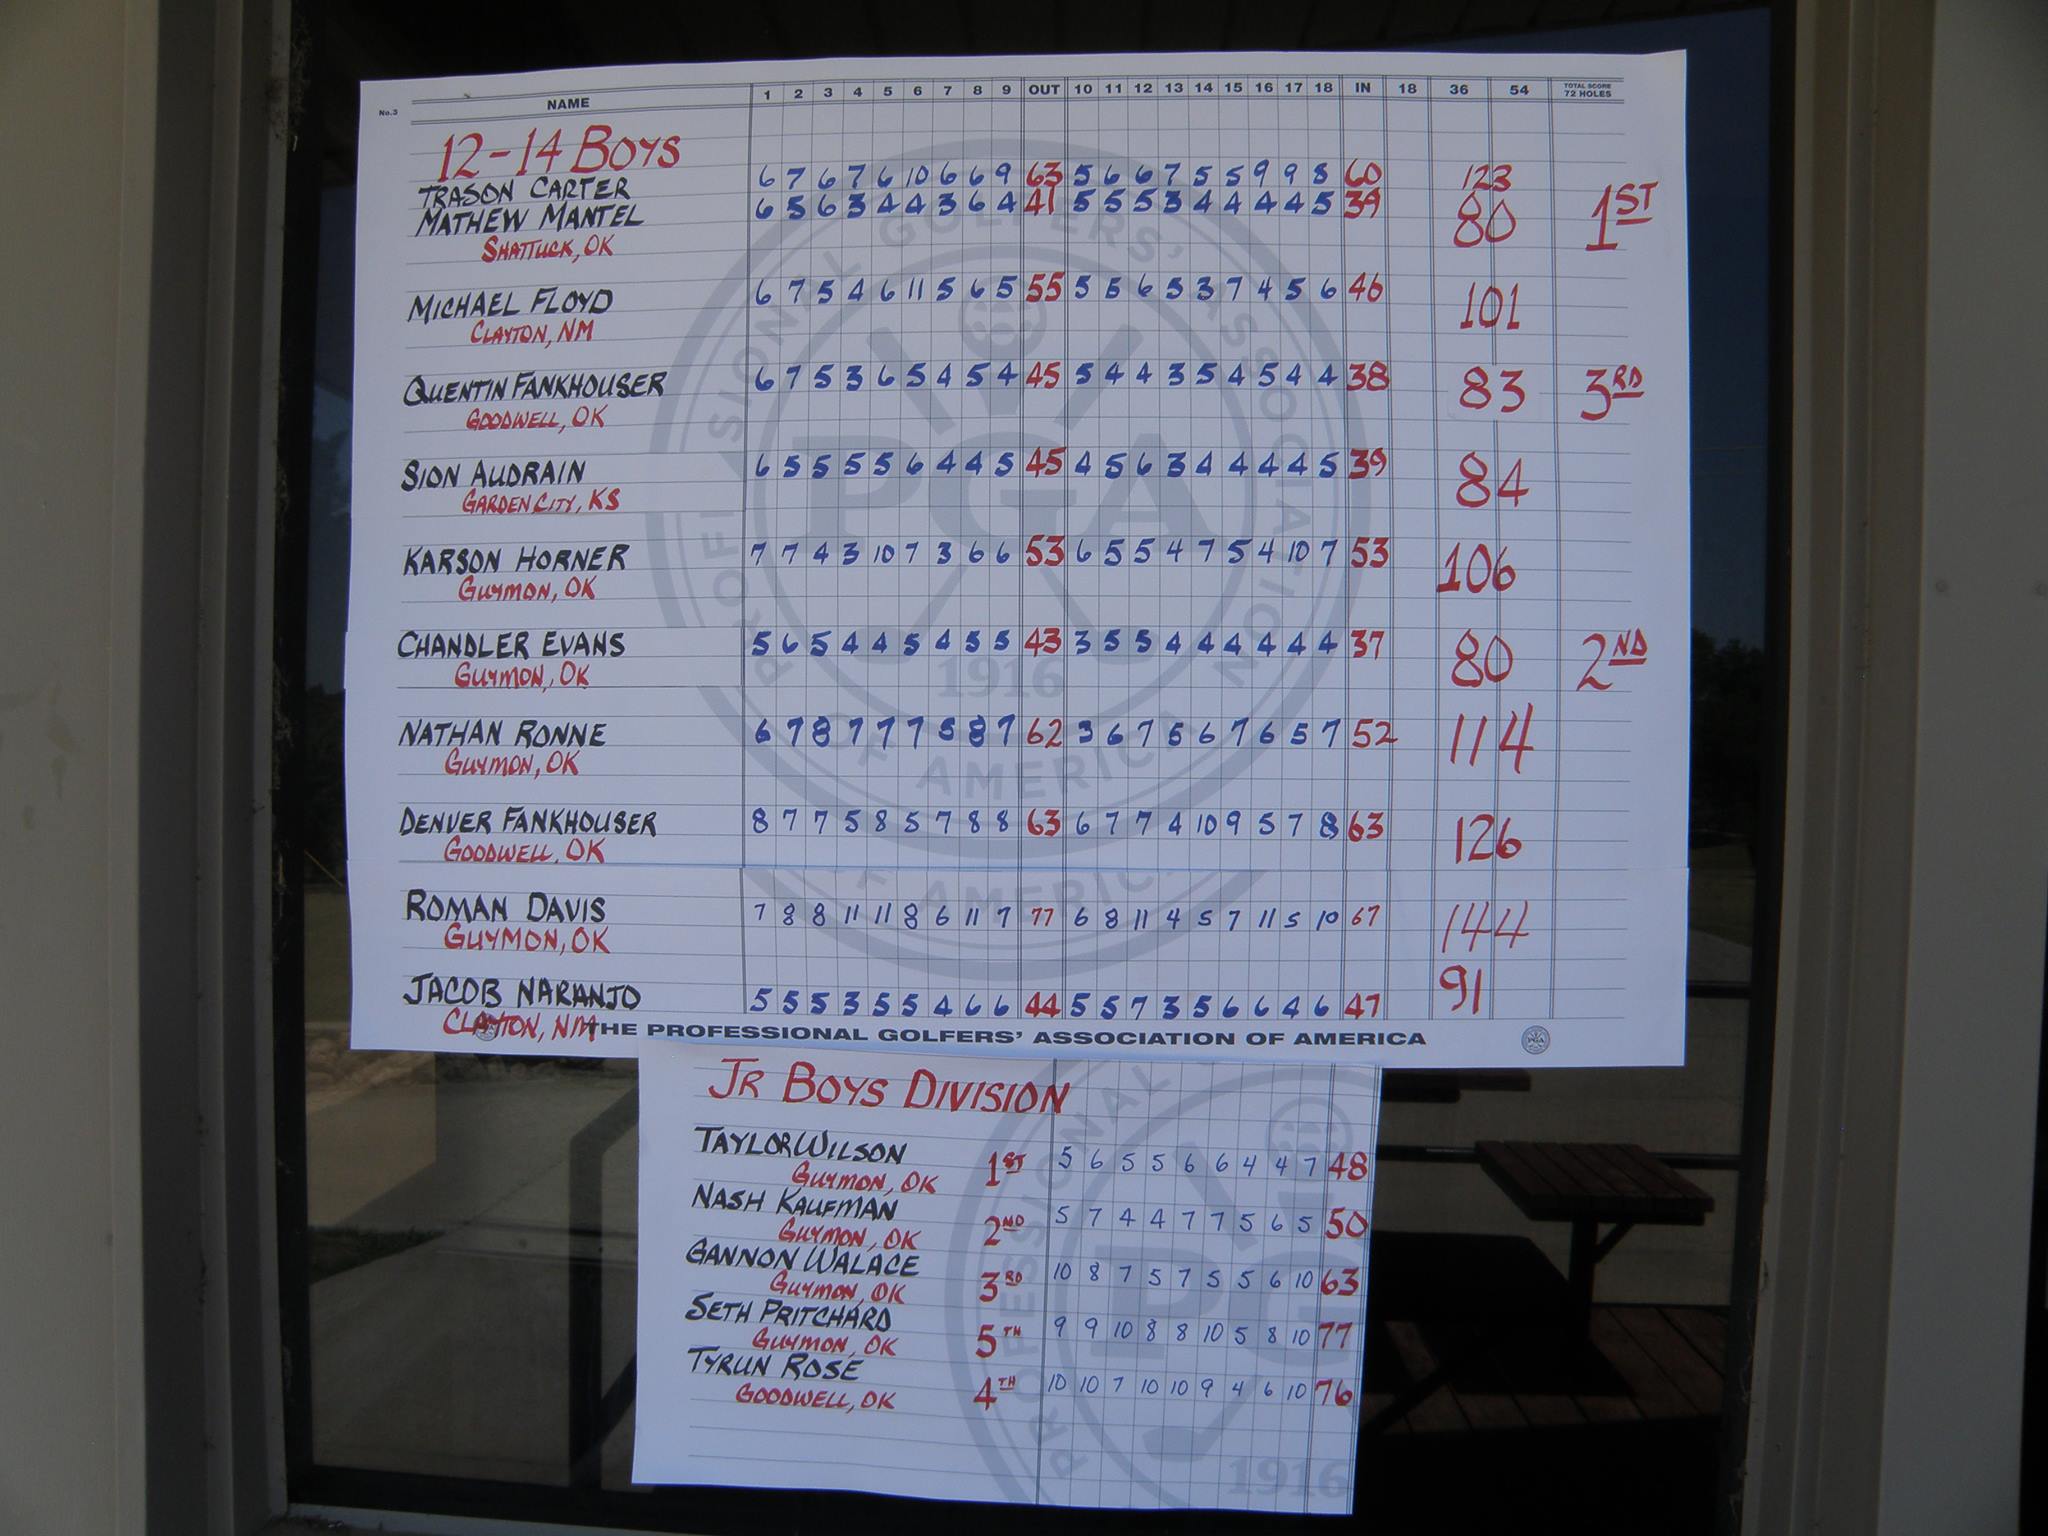 No.3 NAME 1 2 3 4 5 6 7 8 9 OUT 10 11 12 13 14 15 16 17 18 IN 18 36 54 TOTAL SCORE 72 HOLES
12-14 BOYS
TRASON CARTER 6 7 6 7 6 10 6 6 9 63 5 6 6 7 5 5 9 9 8 60 123
MATHEW MANTEL 6 5 6 3 4 4 3 6 4 41 5 5 5 3 4 4 4 4 5 39 80 1ST
SHATTUCK, OK
MICHAEL FLOYD 6 7 5 4 6 11 5 6 5 55 5 5 6 5 3 7 4 5 6 46 101
CLAYTON, NM
QUENTIN FANKHOUSER 6 7 5 3 6 5 4 5 4 45 5 4 4 3 5 4 5 4 4 38 83 3RD
GOODWELL, OK
SION AUDRAIN 6 5 5 5 5 6 4 4 5 45 4 5 6 3 4 4 4 4 5 39 84
GARDEN CITY, KS
KARSON HORNER 7 7 4 3 10 7 3 6 6 53 6 5 5 4 7 5 4 10 7 53 106
GUYMON, OK
CHANDLER EVANS 5 6 5 4 4 5 4 5 5 43 3 5 5 4 4 4 4 4 4 37 80 2ND
GUYMON, OK
NATHAN RONNE 6 7 8 7 7 7 5 8 7 62 3 6 7 5 6 7 6 5 7 52 114
GUYMON, OK
DENVER FANKHOUSER 8 7 7 5 8 5 7 8 8 63 6 7 7 4 10 9 5 7 8 63 126
GOODWELL, OK
ROMAN DAVIS 7 8 8 11 11 8 6 11 7 77 6 8 11 4 5 7 11 5 10 67 144
GUYMON, OK
JACOB NARANJO 5 5 5 3 5 5 4 6 6 44 5 5 7 3 5 6 6 4 6 47 91
CLAYTON, NM
THE PROFESSIONAL GOLFERS' ASSOCIATION OF AMERICA
PROFESSIONAL GOLFERS' ASSOCIATION
PGA
1916
OF AMERICA
OF AMERICA
JR BOYS DIVISION
TAYLOR WILSON 1ST 5 6 5 5 6 6 4 4 7 48
GUYMON, OK
NASH KAUFMAN 2ND 5 7 4 4 7 7 5 6 5 50
GUYMON, OK
GANNON WALACE 3RD 10 8 7 5 7 5 5 6 10 63
GUYMON, OK
SETH PRITCHARD 5TH 9 9 10 8 8 10 5 8 10 77
GUYMON, OK
TYRUN ROSE 4TH 10 10 7 10 10 9 4 6 10 76
GOODWELL, OK
PROFESSIONAL
PG
1916